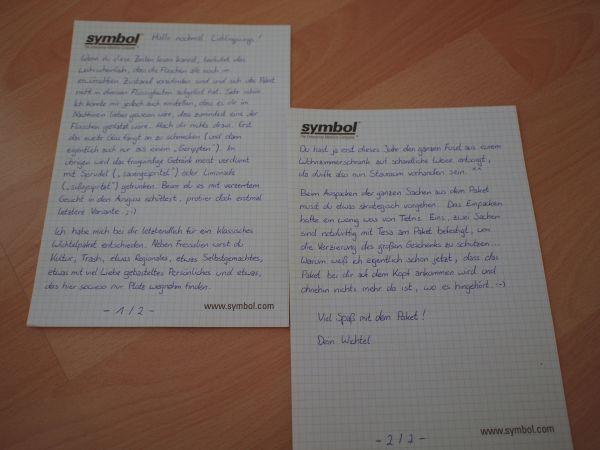 symbol Hallo nochmal Lieblingswings!
The Enterprise Mobility Company
Wenn du diese Zeilen lesen kannst, bedeutet das
wahrscheinlich, dass die Flaschen alle noch im
Zustand vorzufinden sind und sich das Paket
nicht in deren Flüssigkeiten aufgelöst hat. Sehr schön.
Ich könnte mir jedoch auch vorstellen, dass es dir im
Nachhinein lieber gewesen wäre, dass zumindest eine der
Flaschen geplatzt wäre. Mach dir nichts draus. Erst
das zweite Glas fängt an zu schmecken (und dann
eigentlich auch nur aus einem „Gerippten"). Im
übrigen wird das fragwürdige Getränk meist verdünnt
mit Sprudel („sauergespritzt") oder Limonade
(„süßgespritzt") getrunken. Bevor du es mit verzerrtem
Gesicht in den Ausguss schüttest, probier doch erstmal
letztere Variante. ;-)
Ich habe mich bei dir letztendlich für ein klassisches
Wichtelpaket entschieden. Neben Fressalien wirst du
Kultur, Trash, etwas Regionales, etwas Selbstgemachtes,
etwas mit viel Liebe gebasteltes Persönliches und etwas,
das hier sowieso nur Platz wegnahm finden.
www.symbol.com
- 1/2 -
symbol
The Enterprise Mobility Company
Du hast ja erst dieses Jahr den ganzen Fusel aus eurem
Wohnzimmerschrank auf schändliche Weise entsorgt,
da dürfte also nun Stauraum vorhanden sein. ^^
Beim Auspacken der ganzen Sachen aus dem Paket
musst du etwas strategisch vorgehen. Das Einpacken
hatte ein wenig was von Tetris. Eins, zwei Sachen
sind notdürftig mit Tesa am Paket befestigt, um
die Verzierung des großen Geschenks zu schützen...
Warum weiß ich eigentlich schon jetzt, dass das
Paket bei dir auf dem Kopf ankommen wird und
ohnehin nichts mehr da ist, wo es hingehört. :-)
Viel Spaß mit dem Paket!
Dein Wichtel
www.symbol.com
- 2/2 -